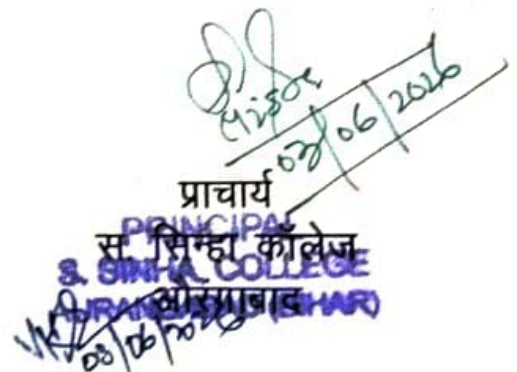 03/06/2026
प्राचार्य
PRINCIPAL
स. सिन्हा कॉलेज
S. SINHA COLLEGE
औरंगाबाद
AURANGABAD (BIHAR)
03/06/2026